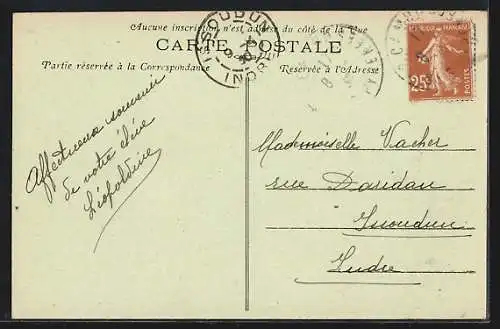 Aucune inscription n'est admise du côté de la Vue
CARTE POSTALE
Partie réservée à la Correspondance
Réservée à l'Adresse
ISSOUDUN
INDRE
RÉPUBLIQUE FRANÇAISE
25c
POSTES
Affectueux souvenir
de votre élève
Léopoldine
Mademoiselle Vacher
rue Daridan
Issoudun
Indre